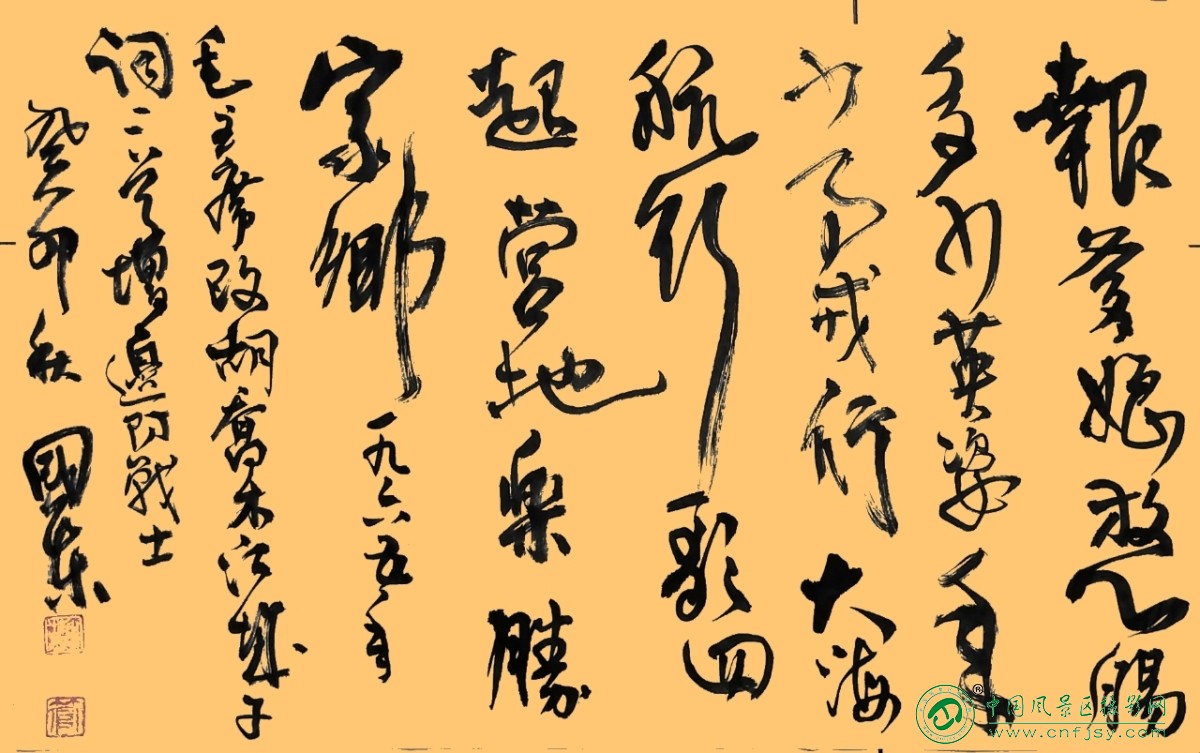 報爹娘救人
多少英姿年
少事戎行大海
航行歌四
起營地樂勝
家鄉一九六五年
毛主席改胡喬木江城子
詞二首增邊防戰士
癸卯秋國東
中国风景区摄影网
www.cnfjsy.com